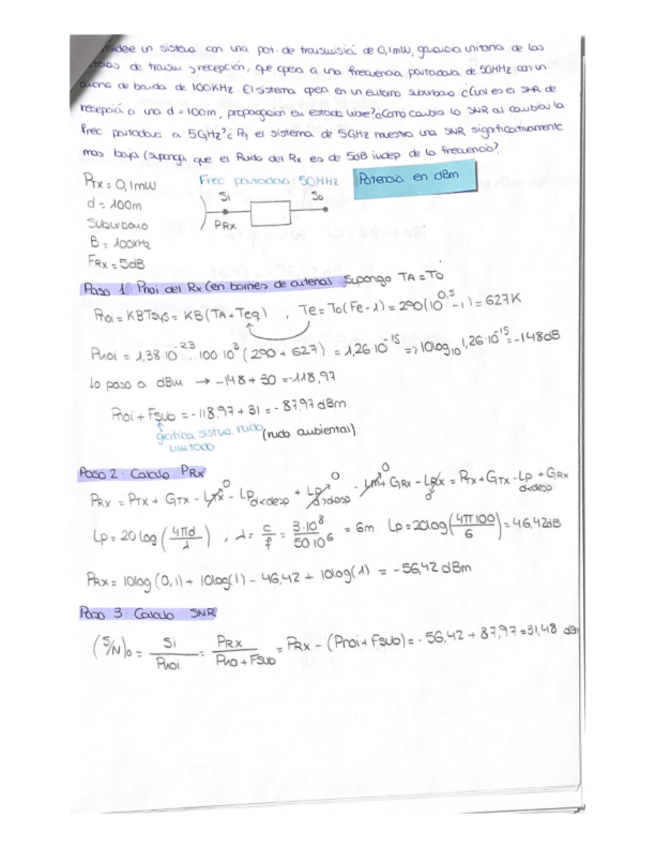 un sistema con una pot. de transmisió de 0,1mW, ganancia unitaria de las
de transm y recepción, que opera a una frecuencia portadora de 50MHz con un
ancho de banda de 100KHz. El sistema opera en un entorno suburbano ¿Cuál es el SNR de
recepción a una d=100m, propagación en estado libre? ¿Cómo cambia la SNR al cambiar la
frec portadora a 5GHz? ¿ el sistema de 5GHz muestra una SNR significativamente
mas baja (suponga que el Ruido del Rx es de 5dB indep de la frecuencia?
PTX = 0,1mW
Frec portadora: 50MHz
Potencia en dBm
d = 100m
Si
So
Suburbano
PRX
B = 100KHz
FRX = 5dB
Paso 1: Pnoi del Rx (en bornes de antena) Supongo TA = To
Pnoi = KBTsys = KB (TA + Teq) , Te = To (Fe - 1) = 290 (10^0,5 - 1) = 627K
Pnoi = 1,38·10^-23 · 100·10^3 (290 + 627) = 1,26·10^-15 => 10log10 1,26·10^-15 = -148dB
Lo paso a dBm → -148 + 30 = -118,97
Pnoi + Fsub = -118,97 + 31 = -87,97 dBm
gráfica sistua ruido (ruido ambiental)
limitado
Paso 2: Calculo PRX
PRX = PTX + GTX - LTX 0 - Lp d<desp + Lp 0 d>desp - Lm 0 + GRX - LRX 0 = PTX + GTX - Lp d<desp + GRX
Lp = 20log (4πd/λ) , λ = c/f = 3·10^8/50·10^6 = 6m Lp = 20log (4π100/6) = 46,42dB
PRX = 10log (0,1) + 10log(1) - 46,42 + 10log(1) = -56,42 dBm
Paso 3: Calculo SNR
(S/N)o = Si/Pnoi = PRX/Pno + Fsub = PRX - (Pnoi + Fsub) = -56,42 + 87,97 = 31,48 dB